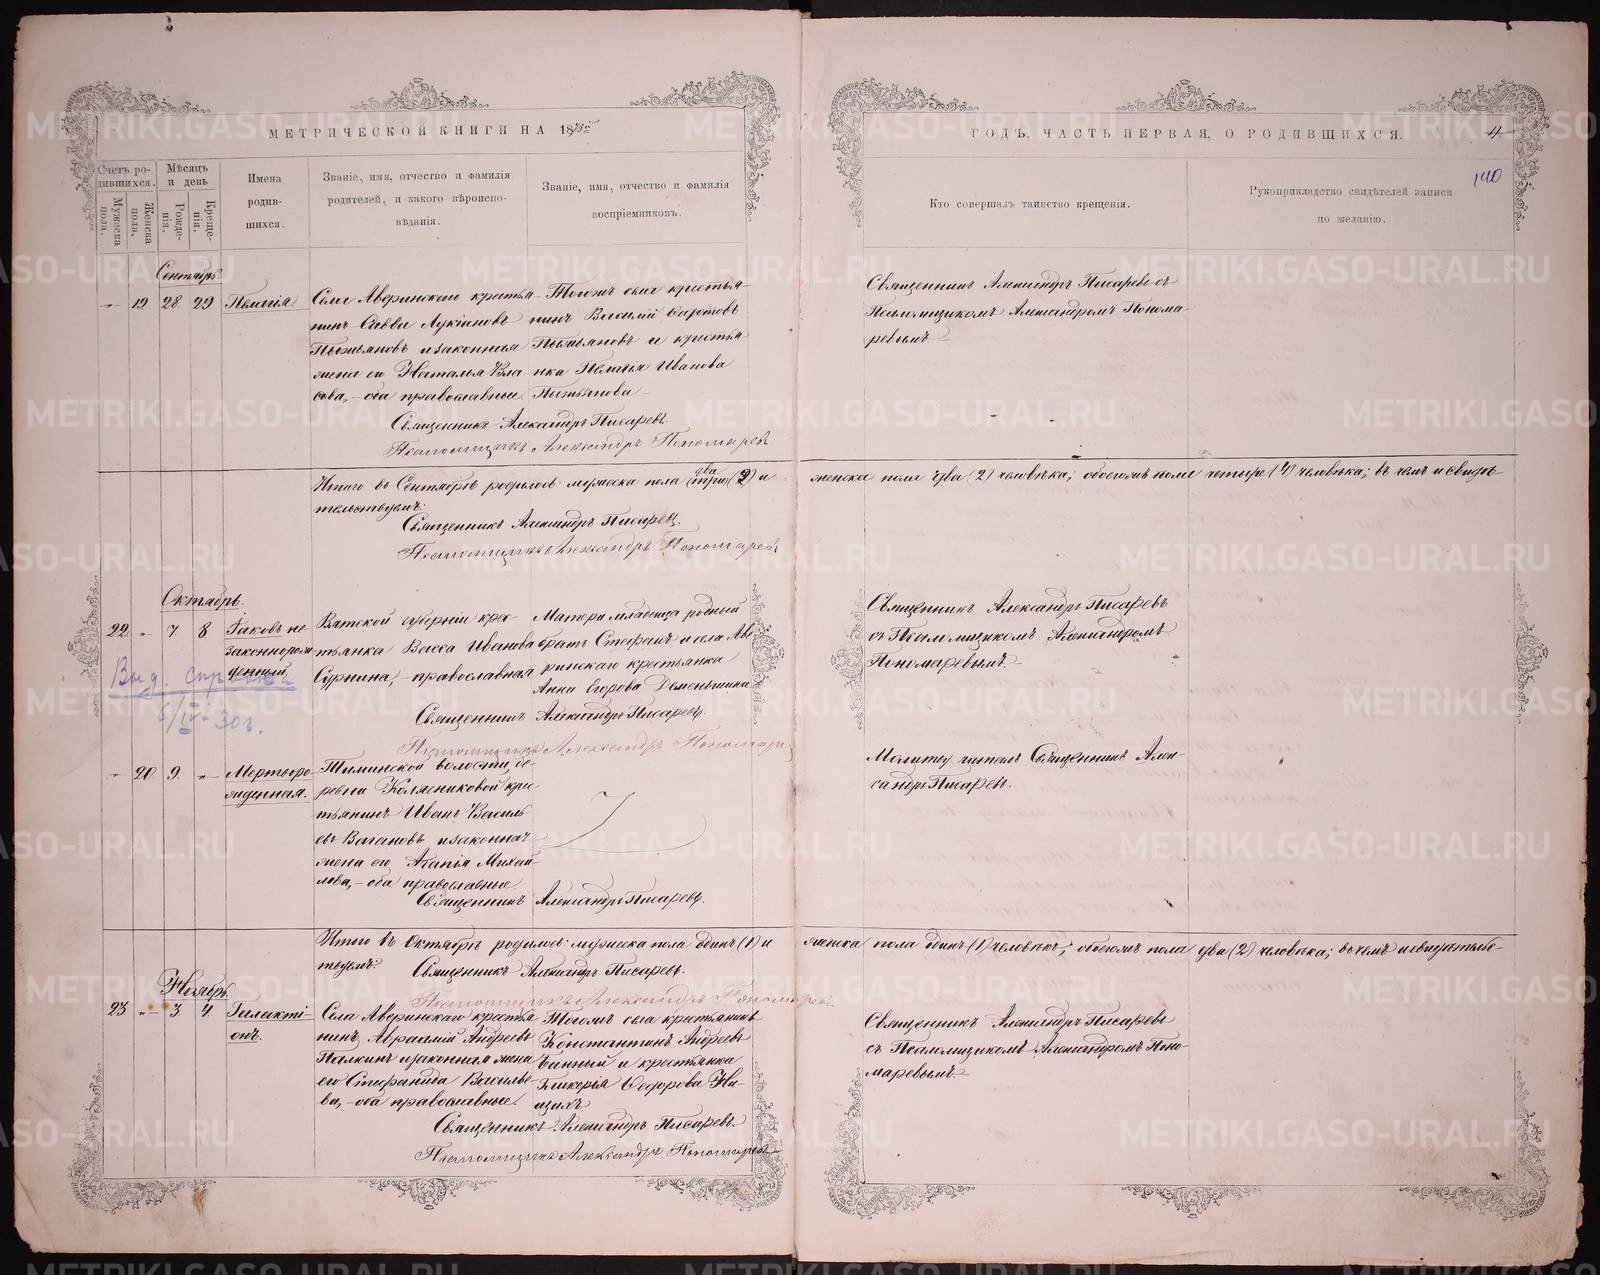 МЕТРИЧЕСКОЙ КНИГИ НА 18
ГОДЪ, ЧАСТЬ ПЕРВАЯ, О РОДИВШИХСЯ.
4
140
Счетъ ро-
дившихся.
Мужеска
пола.
Женска
пола.
Мѣсяцъ
и день
Рожде-
нія.
Креще-
нія.
Имена
родив-
шихся.
Званіе, имя, отчество и фамилія
родителей, и какого вѣроиспо-
вѣданія.
Званіе, имя, отчество и фамилія
воспріемниковъ.
Кто совершалъ таинство крещенія.
Рукоприкладство свидѣтелей записи
по желанію.
Сентябрь.
19 28 29 Пелагія
Села Аверинскаго крестья-
нинъ Савва Лукіановъ
Пьянковъ и законная
жена его Наталья Вла-
сова, - оба православные.
Тогожъ села крестья-
нинъ Василій
и крестья-
нка Пелагія Иванова
Священникъ Александръ Писаревъ съ
Псаломщикомъ Александромъ Понома-
ревымъ
Священникъ Александръ Писаревъ.
Псаломщикъ Александръ Пономаревъ
Итого въ Сентябрѣ родилось: мужеска пола два три (2) и
женска пола два (2) человѣка; обоегожъ пола четыре (4) человѣка; въ чемъ и свидѣ-
тельствуемъ:
Священникъ Александръ Писаревъ.
Псаломщикъ Александръ Пономаревъ
Октябрь.
22 7 8 Іаковъ не-
законнорож-
денный.
Вятской губерніи крес-
тьянка Васса Иванова
Сурнина, - православная
Матери младенца родный
братъ Стефанъ и села Аве-
ринскаго крестьянка
Анна Егорова Деменьшина
Священникъ Александръ Писаревъ
съ Псаломщикомъ Александромъ
Пономаревымъ
Выд.
5/IV-30г.
Священникъ Александръ Писаревъ.
Псаломщикъ Александръ Пономарев
20 9 Мертворо-
жденная.
Тиминской волости, де-
ревни Колясниковой крес-
тьянинъ Иванъ Василь-
евъ Вагановъ и законная
жена его Агапія Михай-
лова, - оба православные.
Молитву читалъ Священникъ Алек-
сандръ Писаревъ.
Священникъ Александръ Писаревъ.
Итого въ Октябрѣ родилось: мужеска пола одинъ (1) и
женска пола одинъ (1) человѣкъ; обоегожъ пола два (2) человѣка; въ чемъ и свидѣтельс-
твуемъ:
Священникъ Александръ Писаревъ.
Псаломщикъ Александръ Пономаревъ
Ноябрь.
23 3 4 Галакті-
онъ.
Села Аверинскаго крестья-
нинъ Авраамій Андреевъ
Палкинъ и законная жена
его Стефанида Василье-
ва, - оба православные.
Тогожъ села крестьянинъ
Константинъ Андреевъ
и крестьянка
Гликерія Ѳедорова
Священникъ Александръ Писаревъ
съ Псаломщикомъ Александромъ Поно-
маревымъ.
Священникъ Александръ Писаревъ.
Псаломщикъ Александръ Пономаревъ
METRIKI.GASO-URAL.RU